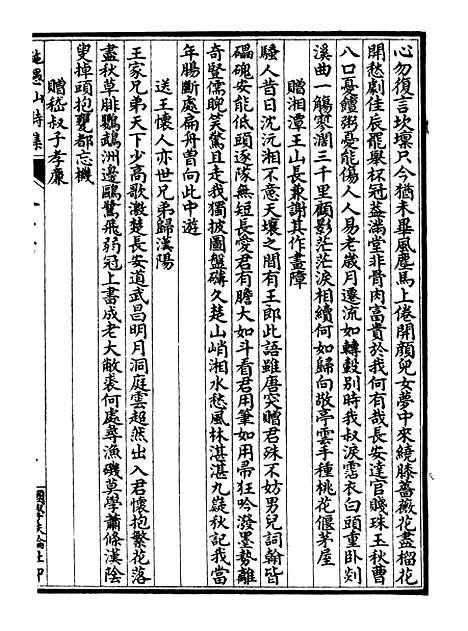 心勿復言坎壈只今猶未畢風塵馬上倦開顏兒女夢中來繞膝薔薇花盡榴花
開愁劇佳辰罷舉杯冠蓋滿堂非骨肉富貴於我何有哉長安達官賤珠玉秋曹
八口憂饘粥憂能傷人人易老歲月遷流如轉轂別時我叔淚霑衣白頭重臥剡
溪曲一觴寥濶三千里顧影茫茫淚相續何如歸向敬亭雲手種桃花偃茅屋
贈湘潭王山長兼謝其作畫障
騷人昔日沈沅湘不意天壤之間有王郎此語雖唐突贈君殊不妨男兒詞翰皆
礧磈安能低頭逐隊無短長愛君有膽大如斗看君用筆如用帚狂吟潑墨勢離
奇豎儒睨笑驚且走我獨披圖盤礴久楚山峭湘水愁風林湛湛九嶷秋記我當
年腸斷處扁舟曾向此中遊
送王懷人亦世兄弟歸漢陽
王家兄弟天下少高歌激楚長安道武昌明月洞庭雲超然出入君懷抱繁花落
盡秋草腓鸚鵡洲邊鷗鷺飛弱冠上書成老大敝裘何處尋漁磯莫學蕭條漢陰
叟掉頭抱甕都忘機
贈嵇叔子孝廉
施愚山詩集
國學扶輪社印